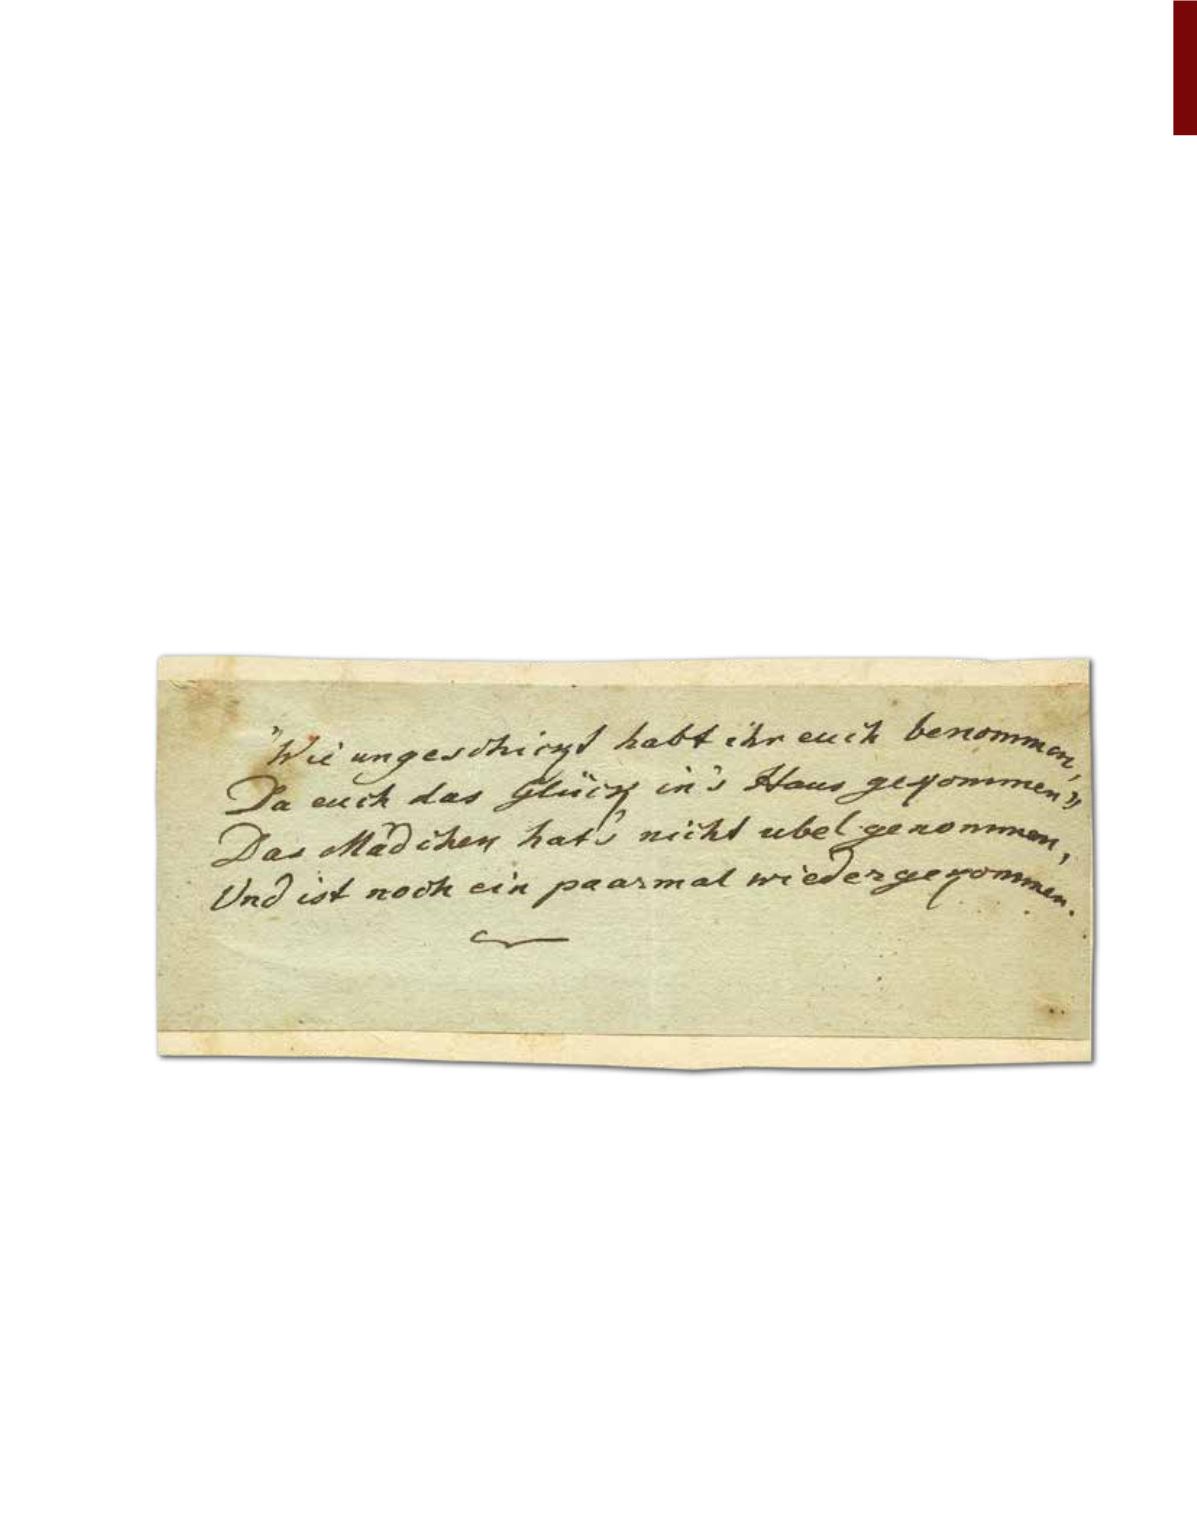 "Wie ungeschickt habt ihr euch benommen,
Da euch das Glück in's Haus gekommen"
Das Mädchen hat's nicht ubel genommen,
Und ist noch ein paarmal wiedergekommen.